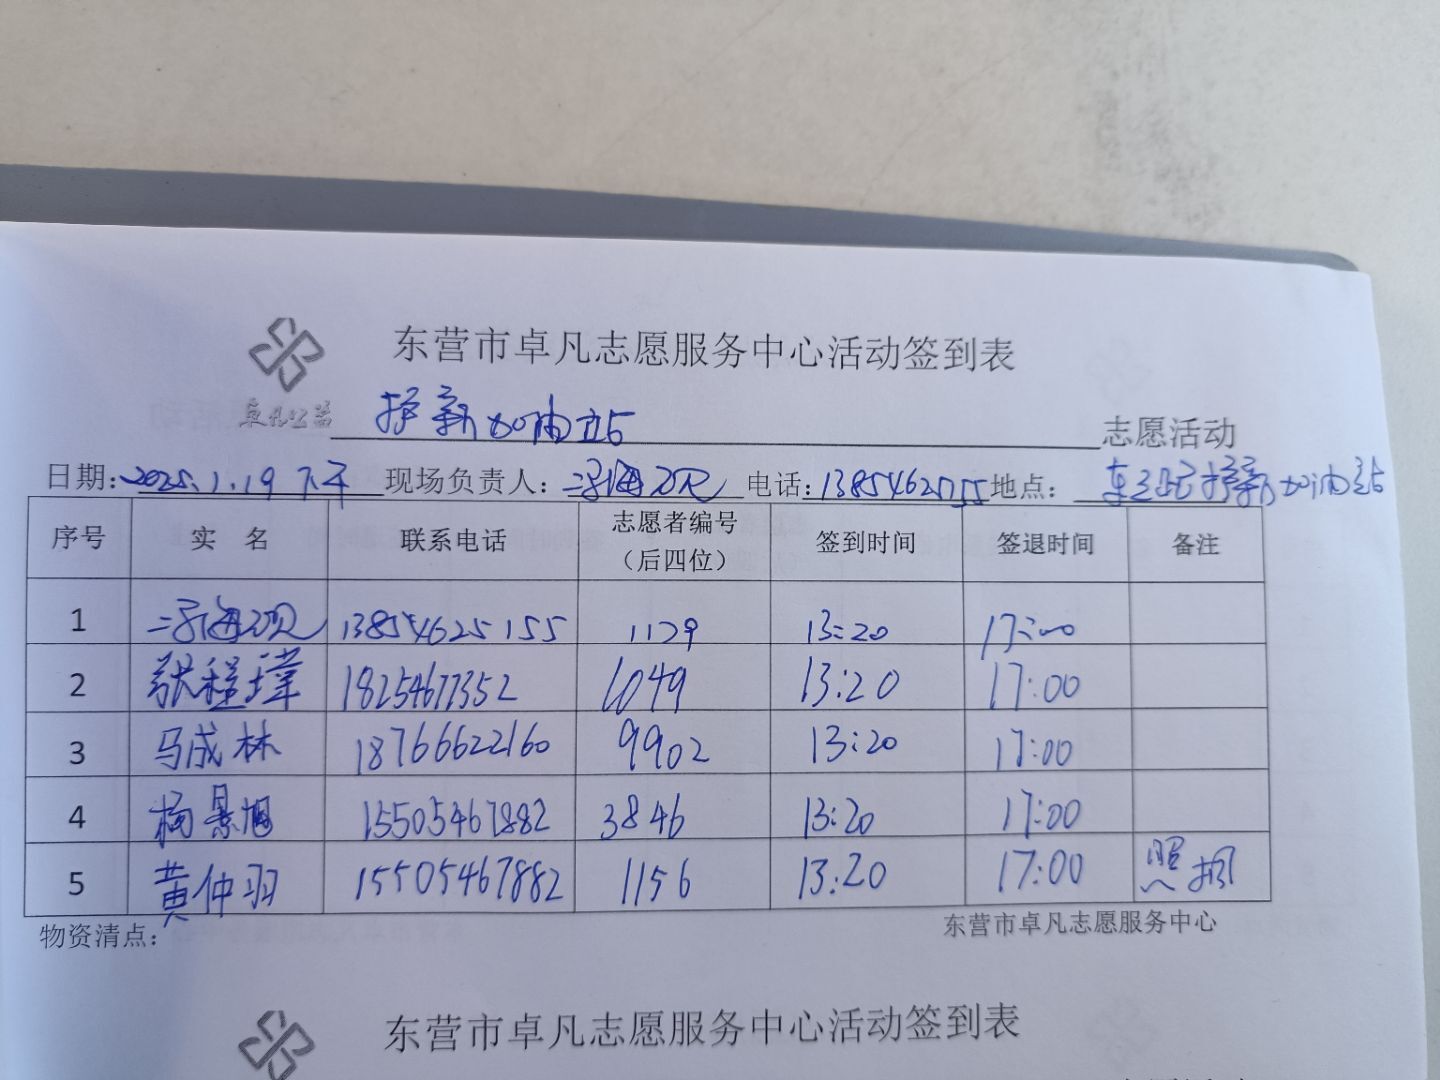 东营市卓凡志愿服务中心活动签到表
卓凡公益 护新加油站 志愿活动
日期: 2025.1.19 下午 现场负责人: 电话: 13854625155 地点: 护新加油站
序号 实 名 联系电话 志愿者编号（后四位） 签到时间 签退时间 备注
1 13854625155 1179 13:20 17:00
2 张程玮 18254677352 1049 13:20 17:00
3 马成林 18766622160 9902 13:20 17:00
4 杨景旭 15505467882 3846 13:20 17:00
5 黄仲羽 15505467882 1156 13:20 17:00 照相
物资清点: 东营市卓凡志愿服务中心
东营市卓凡志愿服务中心活动签到表